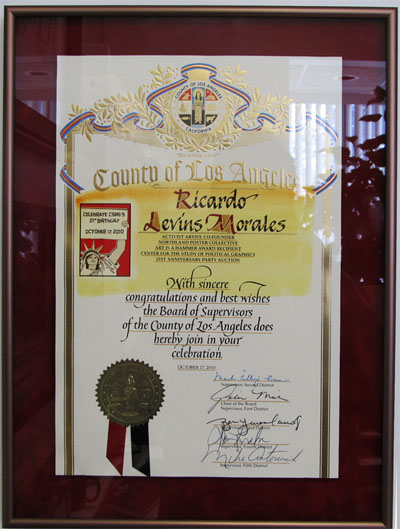 COUNTY OF LOS ANGELES
CALIFORNIA
County of Los Angeles
Ricardo
Levins Morales
CELEBRATE CSPG'S
21ST BIRTHDAY
OCTOBER 17, 2010
ACTIVIST ARTIST, CO-FOUNDER
NORTHLAND POSTER COLLECTIVE
ART IS A HAMMER AWARD RECIPIENT
CENTER FOR THE STUDY OF POLITICAL GRAPHICS
21ST ANNIVERSARY PARTY AUCTION
With sincere
congratulations and best wishes
the Board of Supervisors
of the County of Los Angeles does
hereby join in your
celebration.
OCTOBER 17, 2010
Supervisor, Second District
Chair of the Board
Supervisor, First District
District
Supervisor, Fourth District
Supervisor, Fifth District